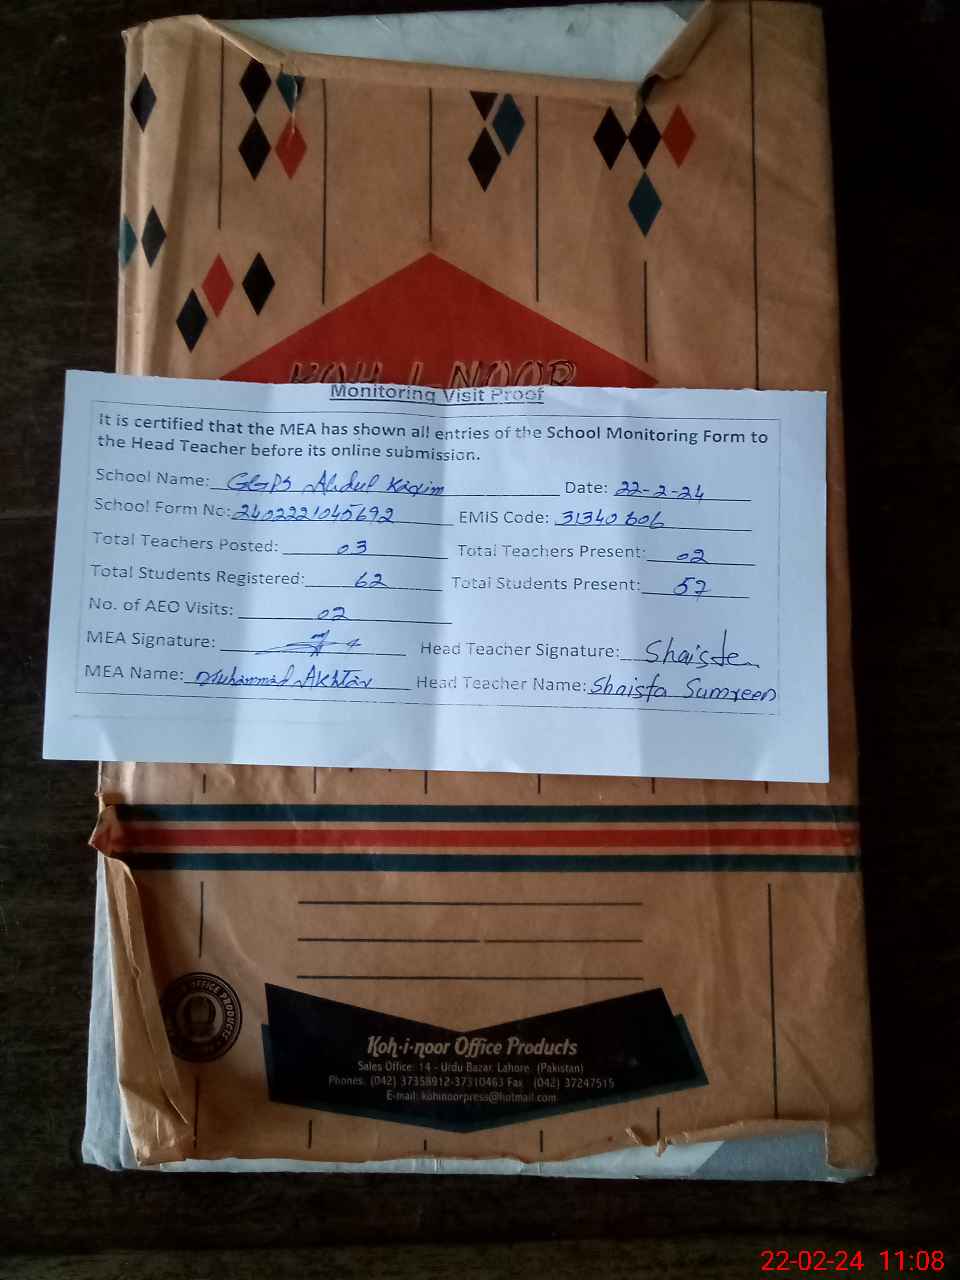 KOH-I-NOOR
Monitoring Visit Proof
It is certified that the MEA has shown all entries of the School Monitoring Form to
the Head Teacher before its online submission.
School Name: GGPS Abdul Karim Date: 22-2-24
School Form No: 2402221045692 EMIS Code: 31340606
Total Teachers Posted: 03 Total Teachers Present: 02
Total Students Registered: 62 Total Students Present: 57
No. of AEO Visits: 02
MEA Signature: Head Teacher Signature: Shaista
MEA Name: Muhammad Akhtar Head Teacher Name: Shaista Sumreen
OFFICE PRODUCTS
Koh·i·noor Office Products
Sales Office: 14 - Urdu Bazar, Lahore. (Pakistan)
Phones: (042) 37358912-37310463 Fax: (042) 37247515
E-mail: kohinoorpress@hotmail.com
22-02-24 11:08